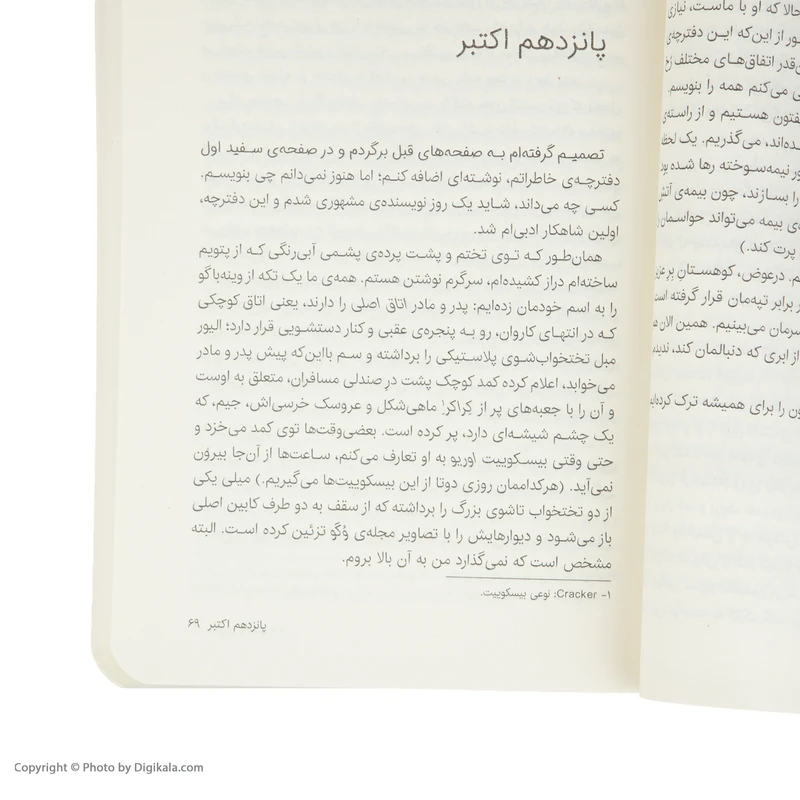 پانزدهم اکتبر
تصمیم گرفته‌ام به صفحه‌های قبل برگردم و در صفحه‌ی سفید اول
دفترچه‌ی خاطراتم، نوشته‌ای اضافه کنم؛ اما هنوز نمی‌دانم چی بنویسم.
کسی چه می‌داند، شاید یک روز نویسنده‌ی مشهوری شدم و این دفترچه،
اولین شاهکار ادبی‌ام شد.
همان‌طور که توی تختم و پشت پرده‌ی پشمی آبی‌رنگی که از پتویم
ساخته‌ام دراز کشیده‌ام، سرگرم نوشتن هستم. همه‌ی ما یک تکه از وینه‌باگو
را به اسم خودمان زده‌ایم: پدر و مادر اتاق اصلی را دارند، یعنی اتاق کوچکی
که در انتهای کاروان، رو به پنجره‌ی عقبی و کنار دستشویی قرار دارد؛ الیور
مبل تختخواب‌شوی پلاستیکی را برداشته و سم بااین‌که پیش پدر و مادر
می‌خوابد، اعلام کرده کمد کوچک پشت درِ صندلی مسافران، متعلق به اوست
و آن را با جعبه‌های پر از کِراکر۱ ماهی‌شکل و عروسک خرسی‌اش، جیم، که
یک چشم شیشه‌ای دارد، پر کرده است. بعضی‌وقت‌ها توی کمد می‌خزد و
حتی وقتی بیسکوییت اوریو به او تعارف می‌کنم، ساعت‌ها از آن‌جا بیرون
نمی‌آید. (هرکداممان روزی دوتا از این بیسکوییت‌ها می‌گیریم.) میلی یکی
از دو تختخواب تاشوی بزرگ را برداشته که از سقف به دو طرف کابین اصلی
باز می‌شود و دیوارهایش را با تصاویر مجله‌ی وُگو تزئین کرده است. البته
مشخص است که نمی‌گذارد من به آن بالا بروم.
۱- Cracker: نوعی بیسکوییت.
پانزدهم اکتبر ۶۹
حالا که او با ماست، نیازی
از این‌که این دفترچه‌ی
اتفاق‌های مختلف
می‌کنم همه را بنویسم.
هستیم و از راسته‌ی
می‌گذریم. یک لحظه
نیمه‌سوخته رها شده بود
را بسازند، چون بیمه‌ی آتش
بیمه می‌تواند حواسمان
پرت کند.)
درعوض، کوهستانِ پر
برابر تپه‌مان قرار گرفته است
می‌بینیم. همین الان
از ابری که دنبالمان کند،
را برای همیشه ترک کرده‌ایم
Copyright © Photo by Digikala.com